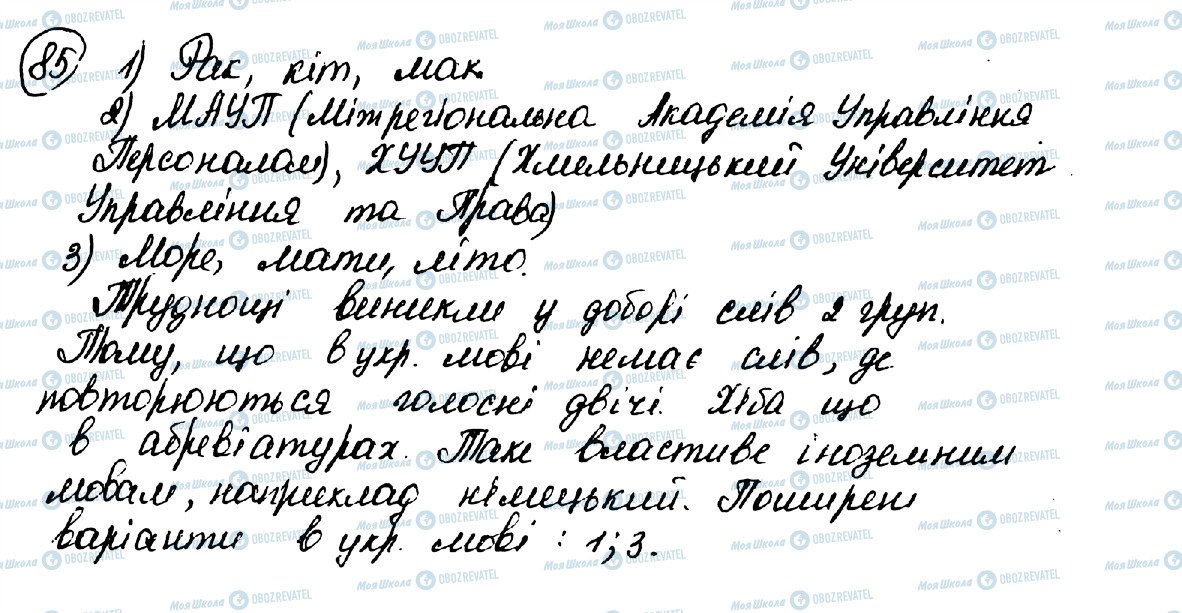 85 1) Рак, кіт, мак
2) МАУП (Міжрегіональна Академія Управління
Персоналом), ХУУП (Хмельницький Університет
Управління та Права)
3) Море, мати, літо.
Труднощі виникли у доборі слів 2 груп.
Тому, що в укр. мові немає слів, де
повторюються голосні двічі. Хіба що
в абревіатурах. Таке властиве іноземним
мовам, наприклад німецький. Поширені
варіанти в укр. мові : 1; 3.
Моя Школа OBOZREVATEL